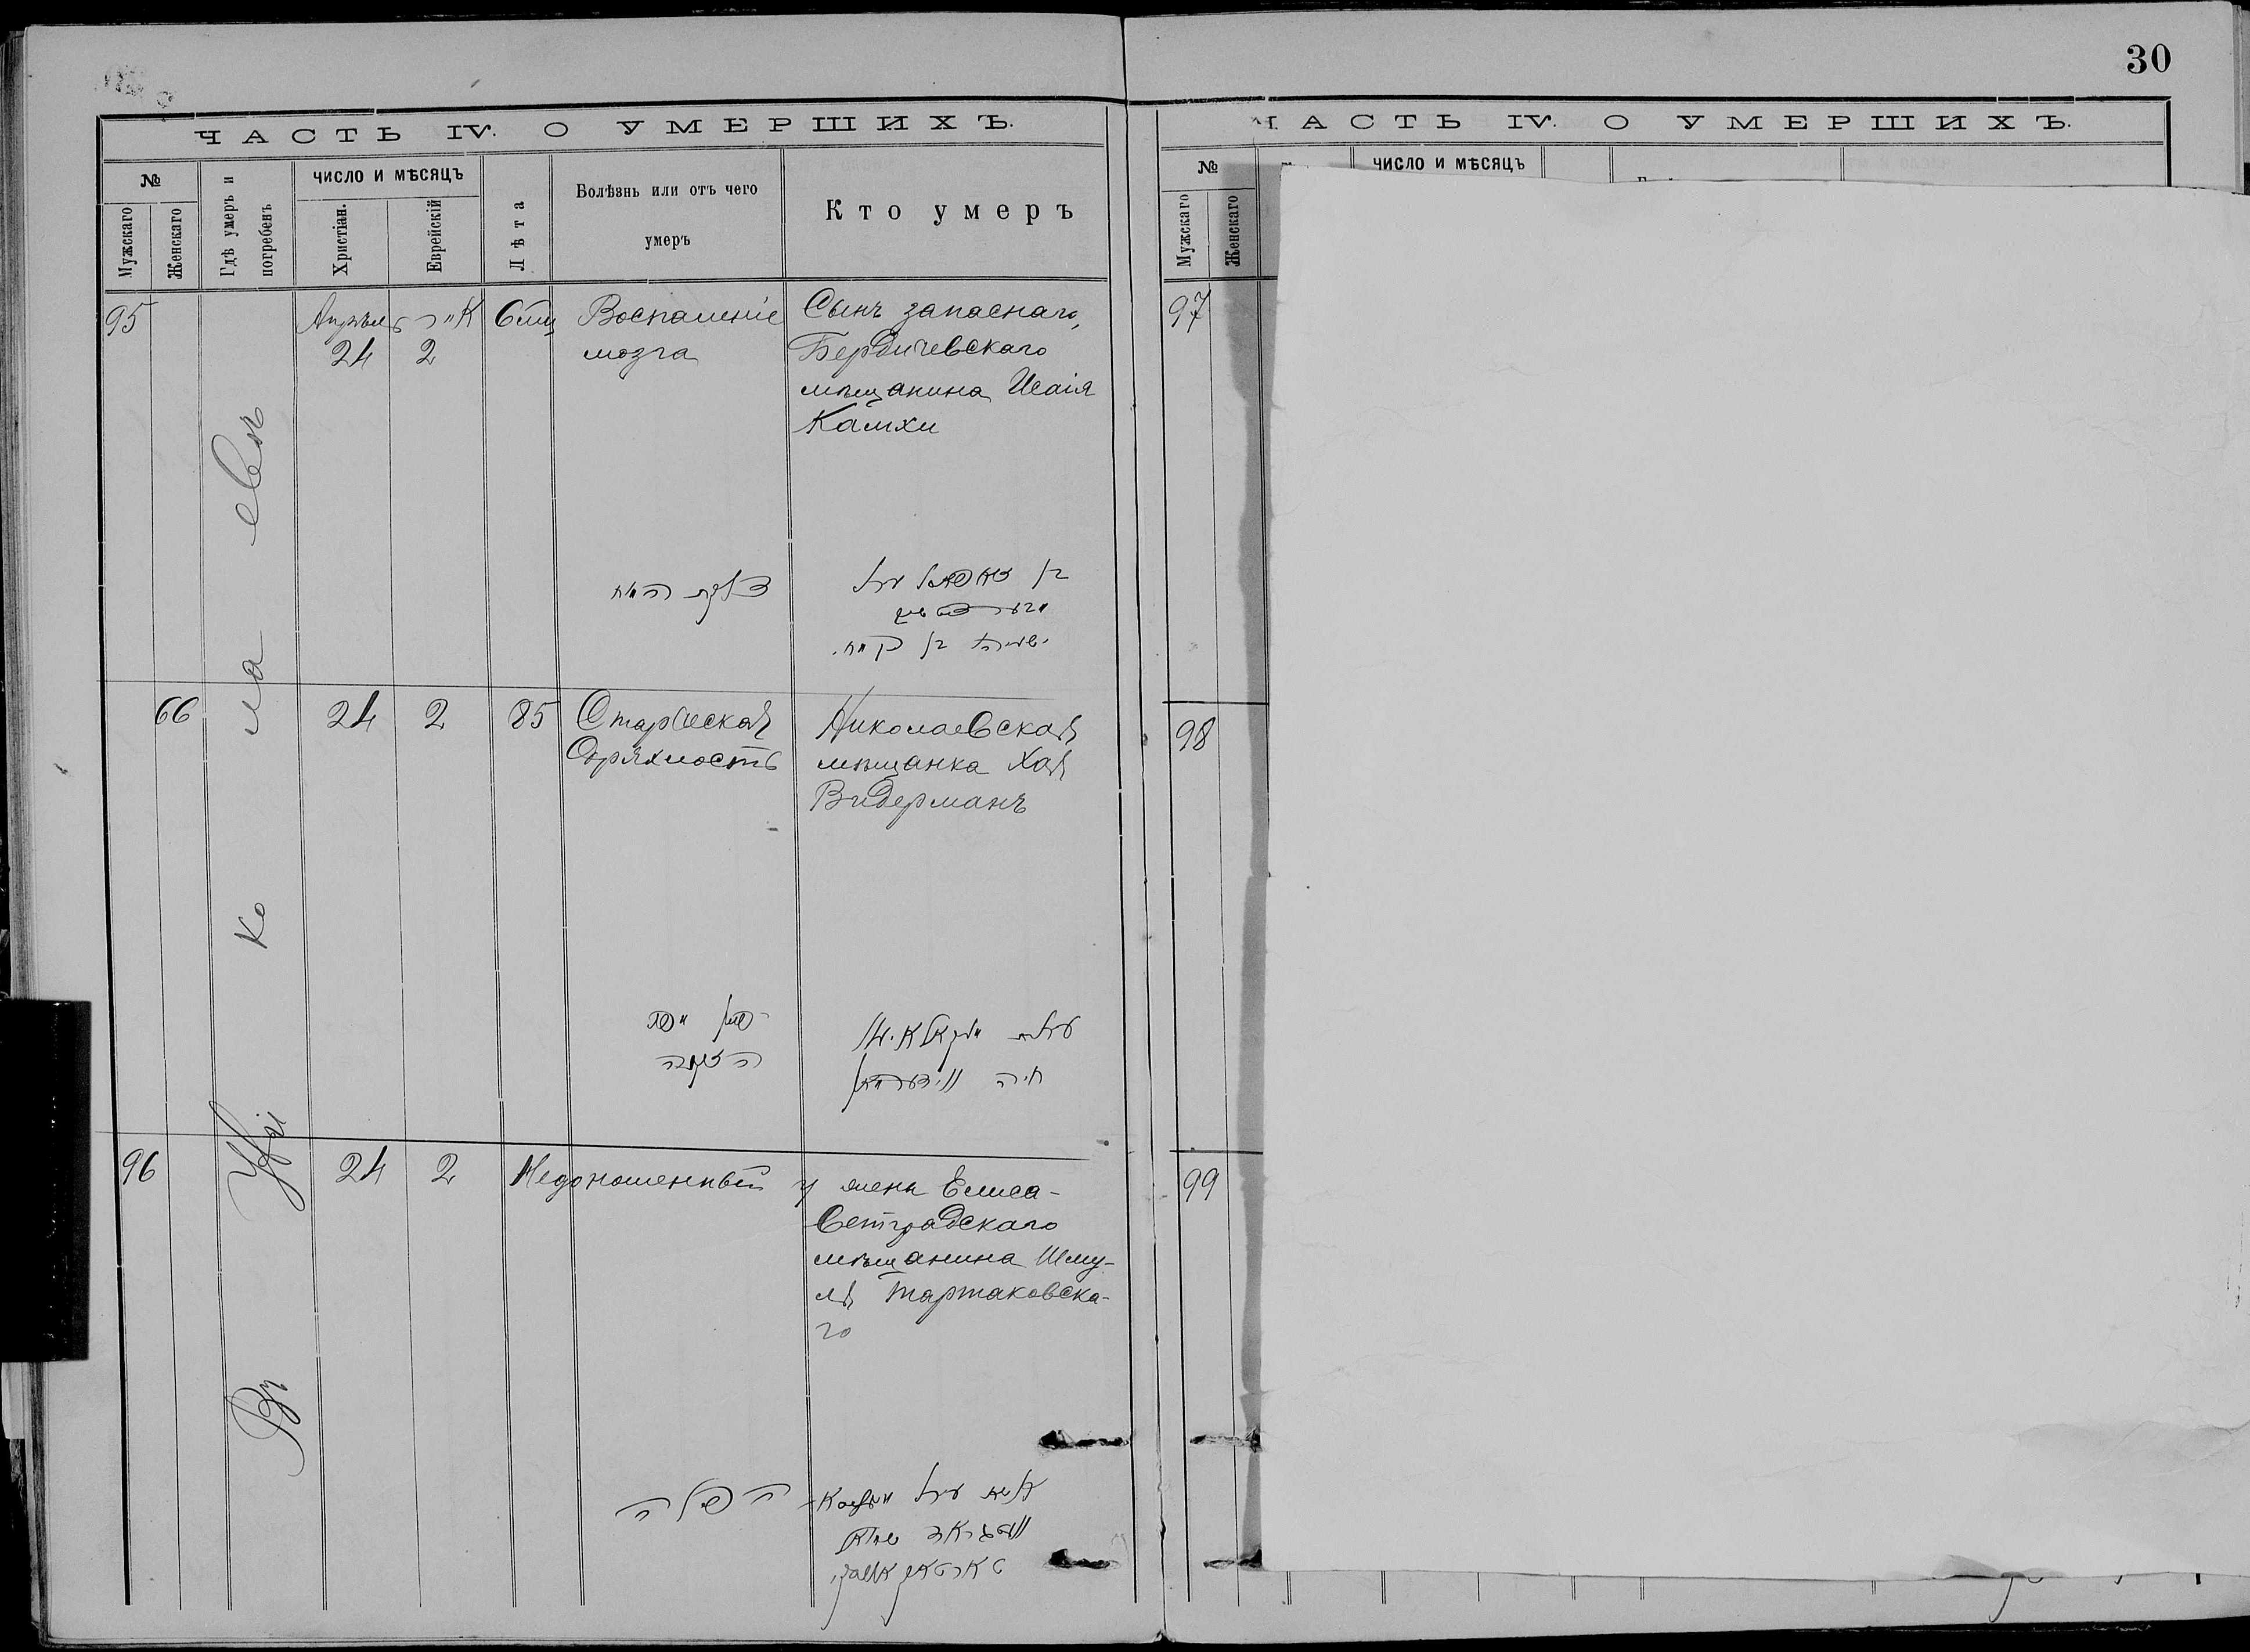 30
ЧАСТЬ IV. О УМЕРШИХЪ.
№
Мужскаго
Женскаго
Гдѣ умеръ и
погребенъ
ЧИСЛО И МѢСЯЦЪ
Христіан.
Еврейскій
Лѣта
Болѣзнь или отъ чего
умеръ
Кто умеръ
95
Въ
Николаевѣ
Апрѣль
24
2
6 мц
Воспаленіе
мозга
Сынъ запаснаго,
Бердичевскаго
мѣщанина Исаія
Камхи
דלקת המוח
66
24
2
85
Старческая
дряхлость
Николаевская
мѣщанка Хая
Видерманъ
הזקנה
חיה ווידערמאן
96
24
2
Недоношенный
у жены Елиса-
ветградскаго
мѣщанина Шму-
ля Тартаковска-
го
הפלה
טארטאקאווסקי
ЧАСТЬ IV. О УМЕРШИХЪ.
№
Мужскаго
Женскаго
ЧИСЛО И МѢСЯЦЪ
97
98
99